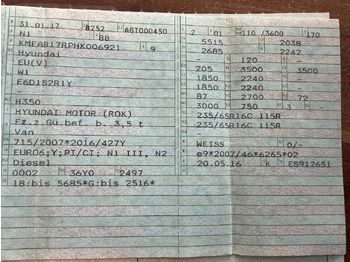 31.01.17 8252 AGT000450
N1 BB
KMFAB17RPHK006921 9
Hyundai
EU(V)
W1
E6D152R1Y
H350
HYUNDAI MOTOR (ROK)
Fz.z.Gü.bef.b. 3,5 t
Van
715/2007*2016/427Y
EURO6;Y;PI/CI; N1 III, N2
Diesel
0002 36Y0 2497
18:bis 5685*G:bis 2516*
2 01 110 /3600 170
5515 2038
2685 2242
- 120 -
205 3500 3500
1850 2240 -
1850 2240 -
87 2700 72
3000 750 3
235/65R16C 115R
235/65R16C 115R
-
WEISS 0/-
e9*2007/46*6265*02
20.05.16 K ES912651